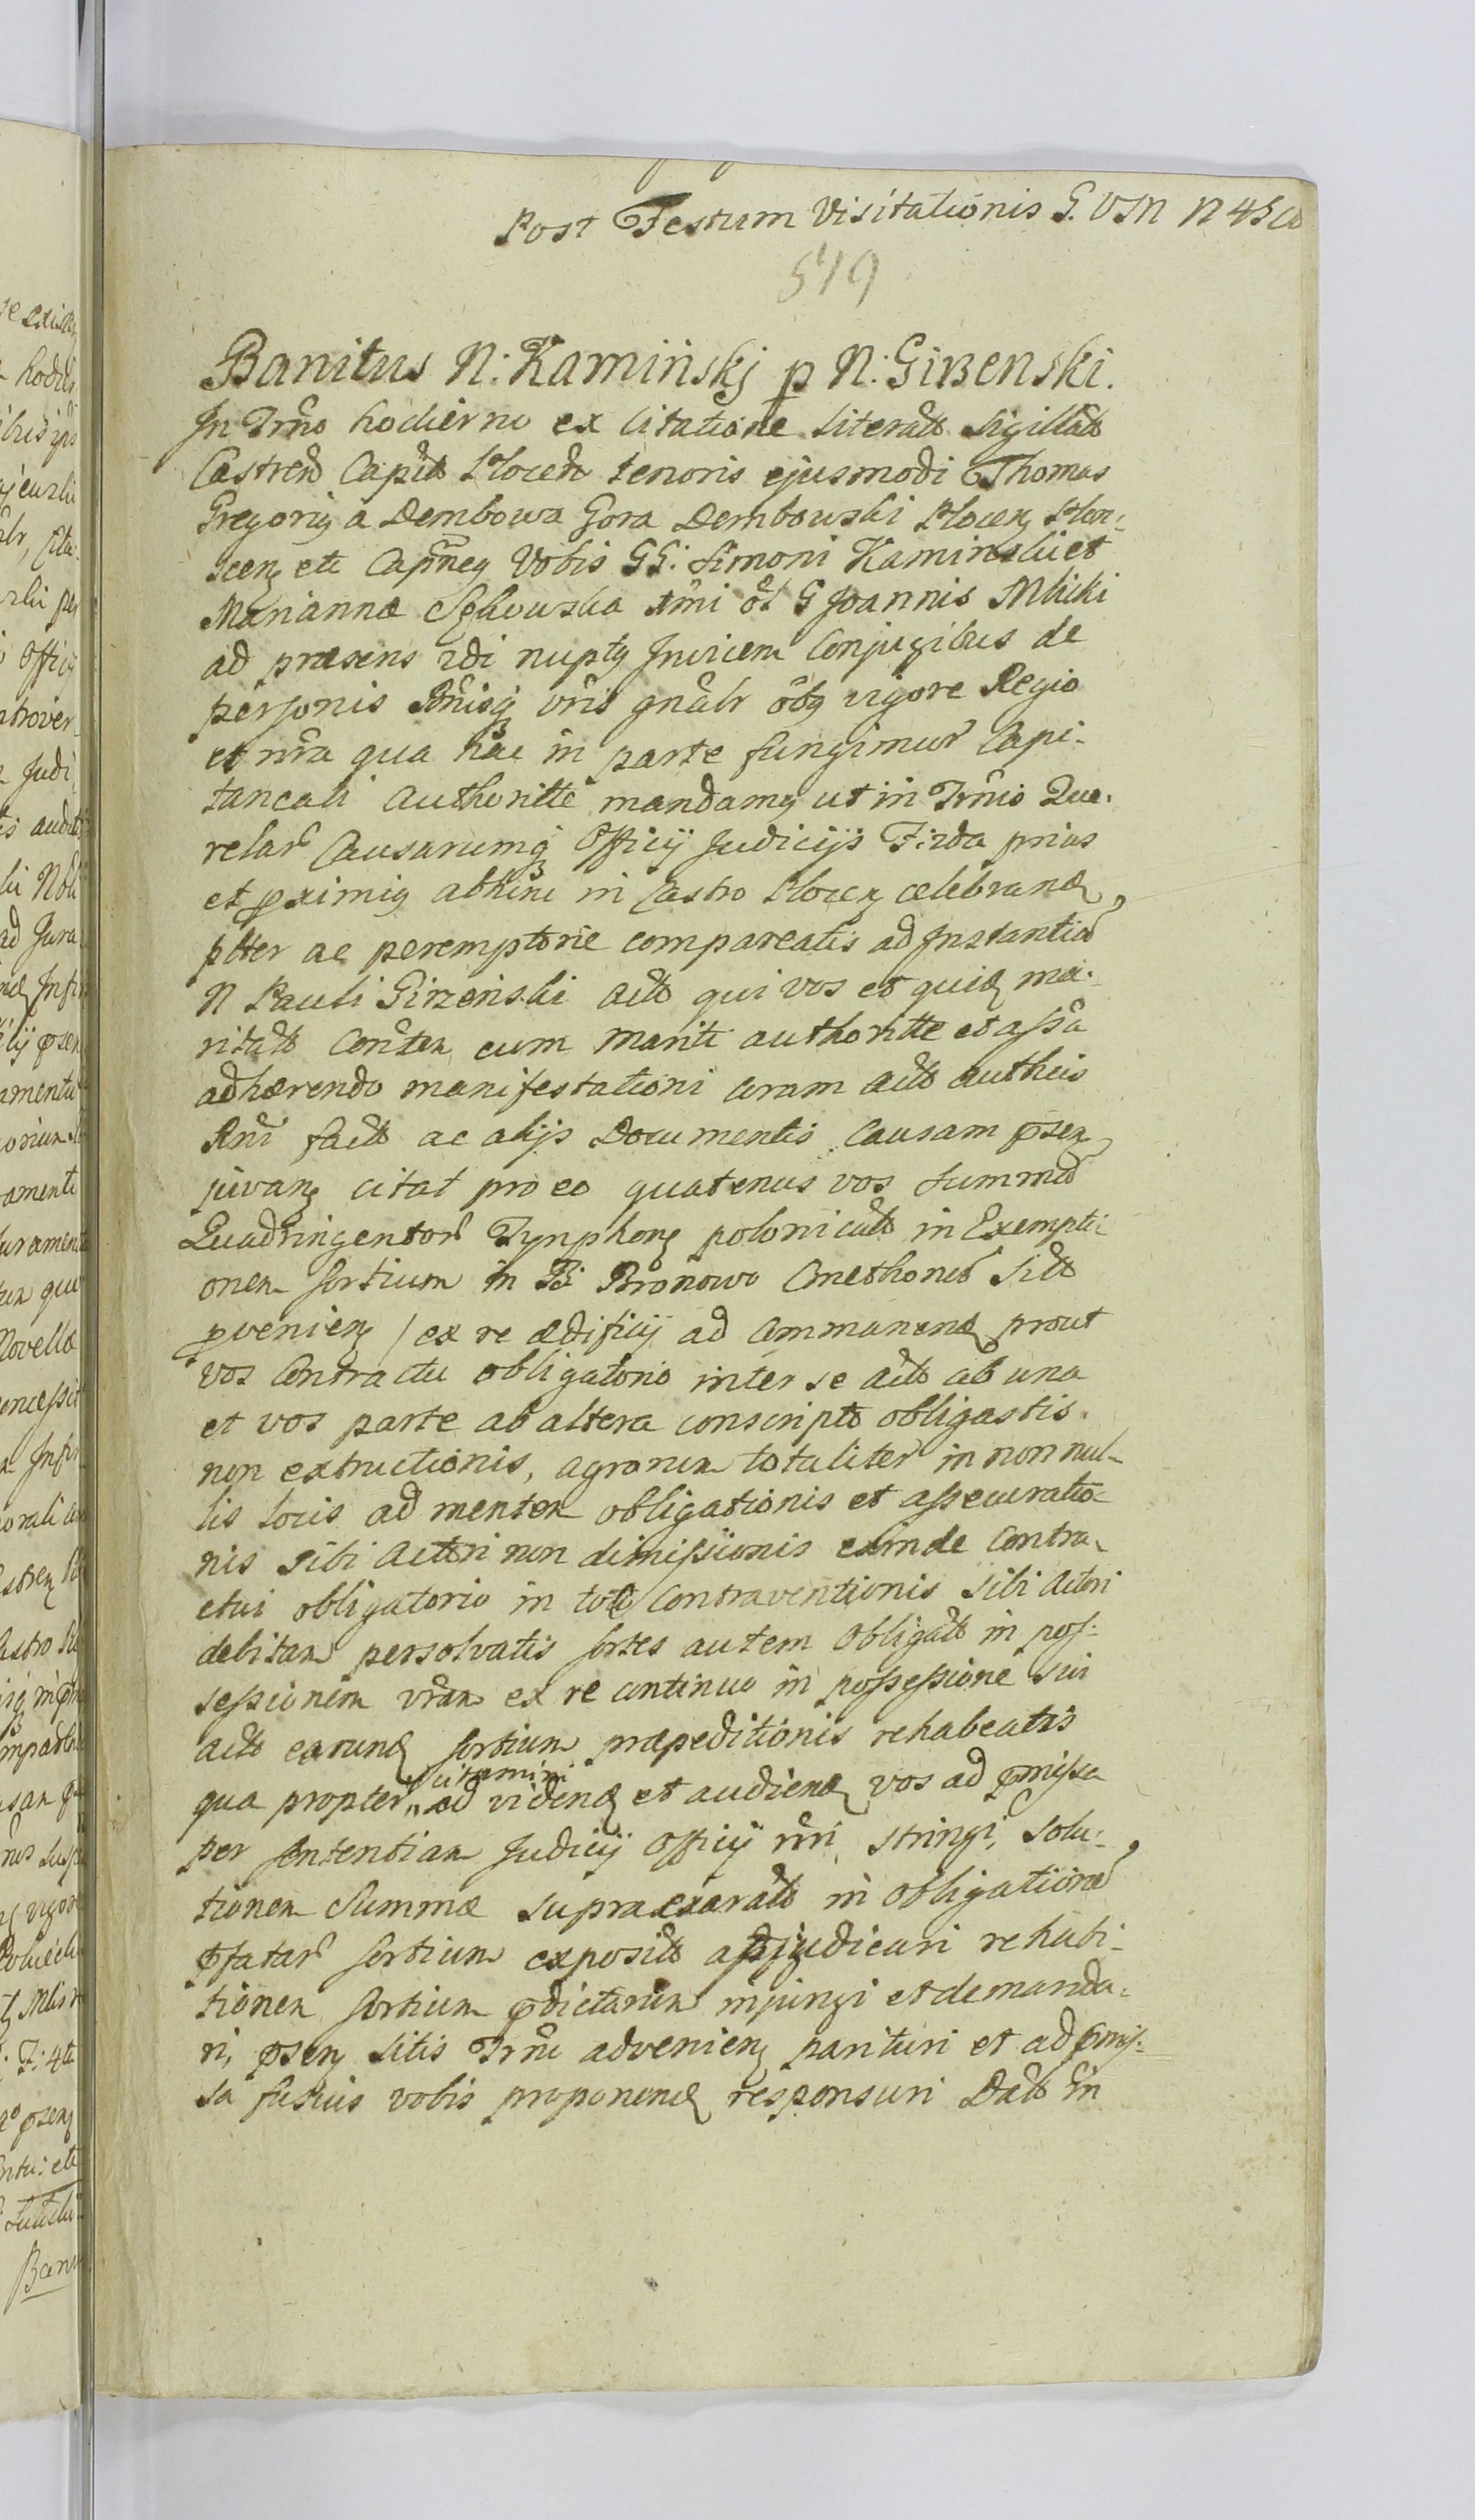 Post Festum Visitationis G. VM
549
Banitus N: Kamiński p N: Girzenski.
In Trno hodierno ex Citatione literatt Sigillatt
Castren Capitt Plocen tenoris ejusmodi Thomas
Gregorig a Dembowa Gora Dembowski Plocen
etc Capneg Vobis GG: Simoni Kaminski et
Marianna olt G Joannis Mlicki
ad præsens 2di nuptg Invicem Conjugibus de
personis Bnisq vris gnalr obg vigore Regio
et nra qua hac in parte fungimur Capi-
taneali Authoritte mandamg ut in Trnis Que-
relar Causarumq Officij Judicijs F: 2da prius
et pximig abhinc in Castro Plocen celebrand
ptter ac peremptorie compareatis ad Instantia
N Pauli Girzenski actt qui vos et quid ma-
ritatt Conten cum Mariti authoritte et assa
adhærendo manifestationi coram actt authcis
fact ac alijs Documentis Causam psen
juvan citat pro eo quatenus vos Summa
Quadringentor Tynphon polonicatt in Exempti-
onem Sortium in Bronowo Cmethones Sitt
pvenien / ex re ædificij ad Commanend prout
vos Contractu obligatorio inter se actt ab una
et vos parte ab altera conscriptt obligastis
non extructionis, agrorum totaliter in non nul-
lis locis ad mentem obligationis et assecuratio-
nis Sibi Actori non dimissionis exinde Contra-
ctui obligatorio in toto Contraventionis Sibi Actori
debitam persolvatis Sortes autem Obligatt in pos-
sessionem vram ex re continuo in possessione Sui
actt earund Sortium præpeditionis rehabeatis
qua propter citamini ad vidend et audiend vos ad pmissa
per Sententiam Judicij Officij nri, stringi, Solu-
tionem Summæ supraexaratt in Obligatione
pfatar Sortium expositt adjudicari rehabi-
tionem Sortium pdictarum injungi et demanda-
ri, psen Sitis Trni advenien parituri et ad pmis-
sa fusius vobis proponend responsuri Datt In